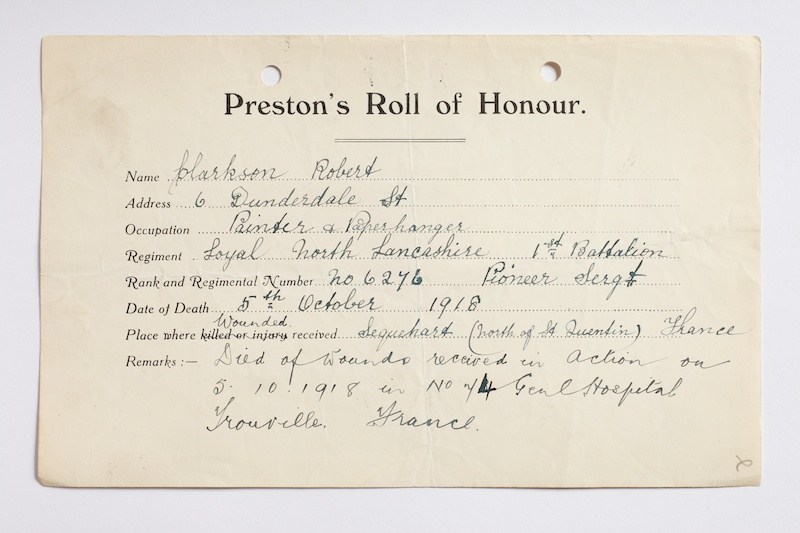 Preston's Roll of Honour.
Name Clarkson Robert
Address 6 Dunderdale St
Occupation Painter & Paperhanger
Regiment Loyal North Lancashire 1st Battalion
Rank and Regimental Number No 6276 Pioneer Sergt
Date of Death 5th October 1918
Wounded
Place where killed or injury received Sequehart (North of St Quentin) France
Remarks :— Died of Wounds received in Action on
5. 10. 1918 in No 74 Genl Hospital
Trouville. France.